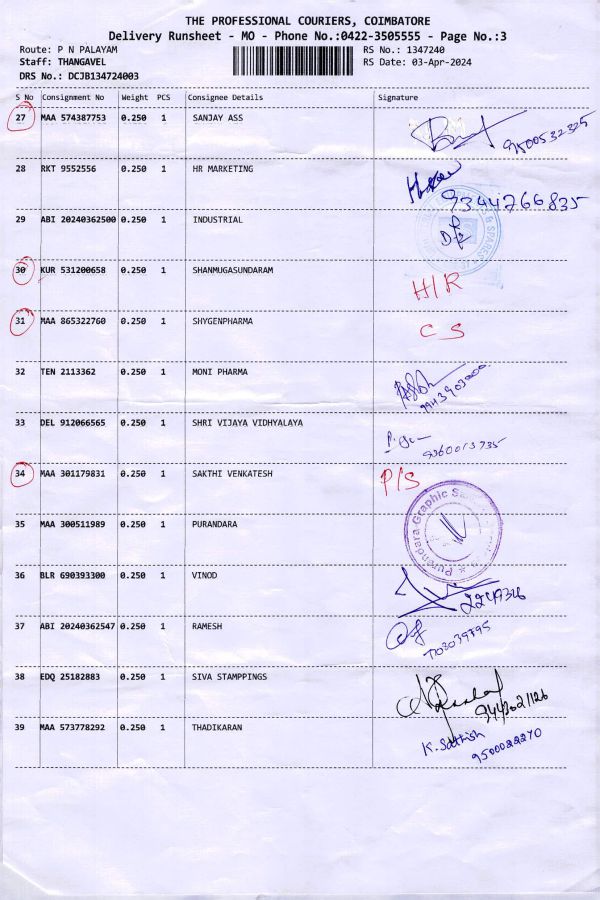 THE PROFESSIONAL COURIERS, COIMBATORE
Delivery Runsheet - MO - Phone No.:0422-3505555 - Page No.:3
Route: P N PALAYAM RS No.: 1347240
Staff: THANGAVEL RS Date: 03-Apr-2024
DRS No.: DCJB134724003
S No Consignment No Weight PCS Consignee Details Signature
27 MAA 574387753 0.250 1 SANJAY ASS 9500532325
28 RKT 9552556 0.250 1 HR MARKETING 9344766835
29 ABI 20240362500 0.250 1 INDUSTRIAL
30 KUR 531200658 0.250 1 SHANMUGASUNDARAM H/R
31 MAA 865322760 0.250 1 SHYGENPHARMA C S
32 TEN 2113362 0.250 1 MONI PHARMA
33 DEL 912066565 0.250 1 SHRI VIJAYA VIDHYALAYA 9360013735
34 MAA 301179831 0.250 1 SAKTHI VENKATESH P/S
35 MAA 300511989 0.250 1 PURANDARA Purandara Graphic
36 BLR 690393300 0.250 1 VINOD 2247326
37 ABI 20240362547 0.250 1 RAMESH
38 EDQ 25182883 0.250 1 SIVA STAMPPINGS 9443021126
39 MAA 573778292 0.250 1 THADIKARAN K. Sathish
9500022270